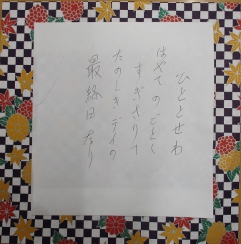 ひととせわ
はやてのごとく
すぎさりて
たのしきデイの
最終日なり